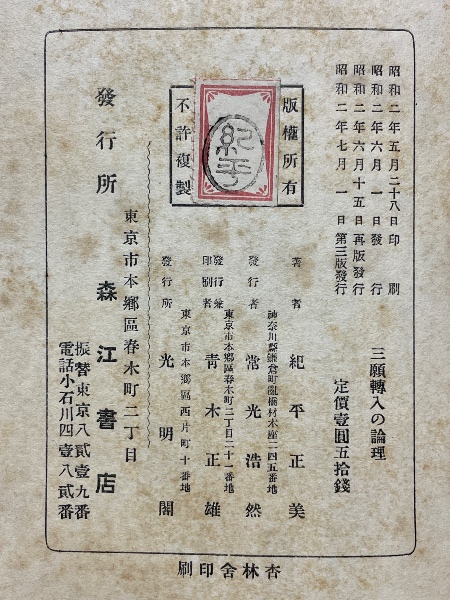 昭和二年五月二十八日印刷
昭和二年六月一日發行
昭和二年六月十五日再版發行
昭和二年七月一日第三版發行
三願轉入の論理
定價壹圓五拾錢
版權所有
不許複製
紀平
著者 紀平正美
神奈川縣鎌倉町亂橋材木座二四五番地
發行者 常光浩然
東京市本鄕區春木町二丁目二十一番地
發行兼印刷者 青木正雄
東京市本鄕區西片町十番地
發行所 光明閣
東京市本鄕區春木町二丁目
發行所 森江書店
振替東京八貳壹九番
電話小石川四壹八貳番
杏林舍印刷